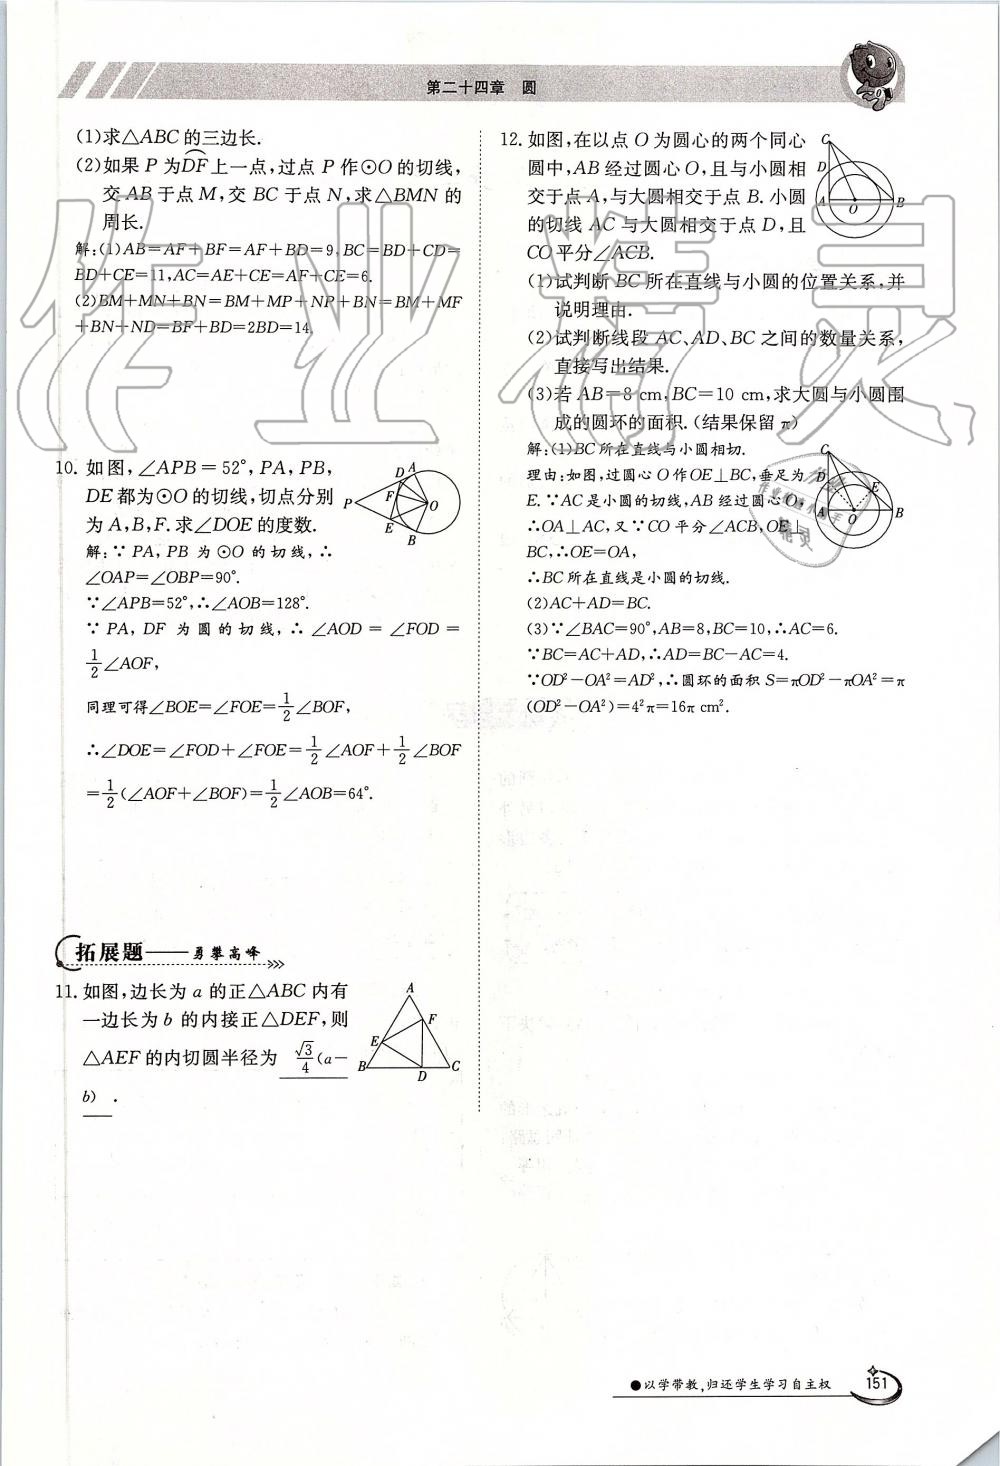 第二十四章 圆
(1)求△ABC的三边长.
(2)如果P为DF上一点,过点P作⊙O的切线,
交AB于点M,交BC于点N,求△BMN的
周长.
解:(1)AB=AF+BF=AF+BD=9,BC=BD+CD=
BD+CE=11,AC=AE+CE=AF+CE=6.
(2)BM+MN+BN=BM+MP+NP+BN=BM+MF
+BN+ND=BF+BD=2BD=14.
10. 如图,∠APB=52°,PA,PB,
DE都为⊙O的切线,切点分别
为A,B,F.求∠DOE的度数.
解:∵PA,PB为⊙O的切线,∴
∠OAP=∠OBP=90°.
∵∠APB=52°,∴∠AOB=128°.
∵PA,DF为圆的切线,∴∠AOD=∠FOD=
1/2∠AOF,
同理可得∠BOE=∠FOE=1/2∠BOF,
∴∠DOE=∠FOD+∠FOE=1/2∠AOF+1/2∠BOF
=1/2(∠AOF+∠BOF)=1/2∠AOB=64°.
P
D
A
F
O
E
B
拓展题——勇攀高峰
11. 如图,边长为a的正△ABC内有
一边长为b的内接正△DEF,则
△AEF的内切圆半径为 √3/4(a-
b) .
A
F
E
B
D
C
12. 如图,在以点O为圆心的两个同心
圆中,AB经过圆心O,且与小圆相
交于点A,与大圆相交于点B.小圆
的切线AC与大圆相交于点D,且
CO平分∠ACB.
(1)试判断BC所在直线与小圆的位置关系,并
说明理由.
(2)试判断线段AC、AD、BC之间的数量关系,
直接写出结果.
(3)若AB=8 cm,BC=10 cm,求大圆与小圆围
成的圆环的面积.(结果保留π)
C
D
A
O
B
解:(1)BC所在直线与小圆相切.
理由:如图,过圆心O作OE⊥BC,垂足为
E.∵AC是小圆的切线,AB经过圆心O,
∴OA⊥AC,又∵CO平分∠ACB,OE⊥
BC,∴OE=OA,
∴BC所在直线是小圆的切线.
(2)AC+AD=BC.
(3)∵∠BAC=90°,AB=8,BC=10,∴AC=6.
∵BC=AC+AD,∴AD=BC-AC=4.
∵OD²-OA²=AD²,∴圆环的面积S=πOD²-πOA²=π
(OD²-OA²)=4²π=16π cm².
C
D
E
A
O
B
作业精灵
●以学带教,归还学生学习自主权
151